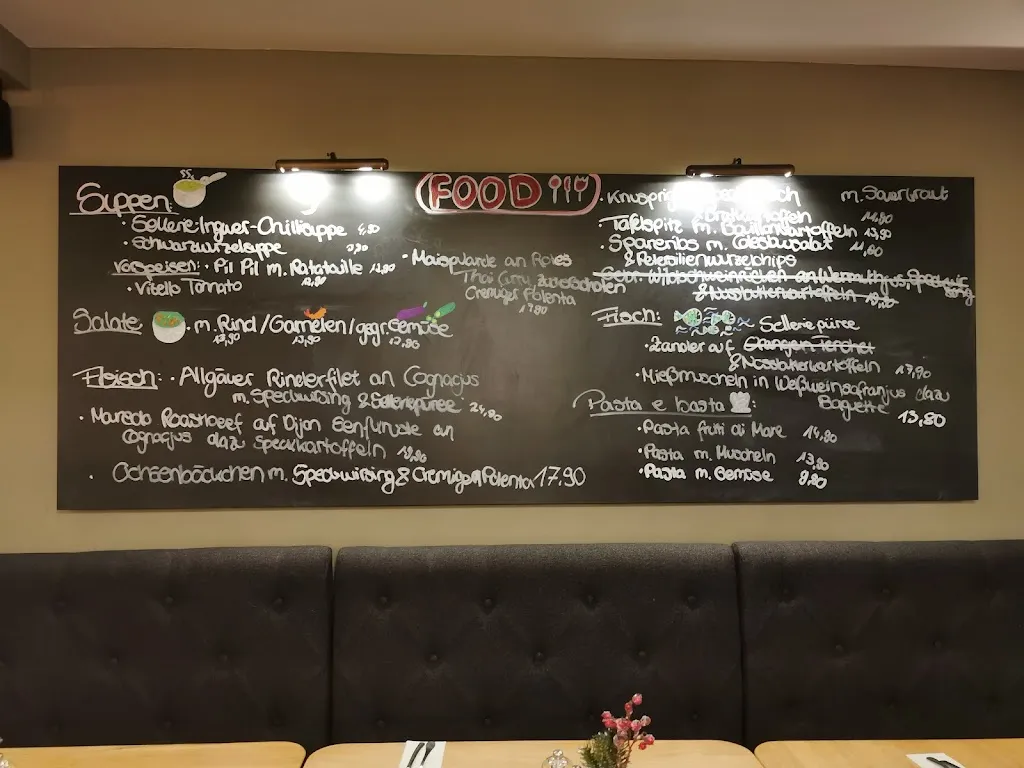 FOOD
Suppen:
• Sellerie-Ingwer-Chilisuppe 4,90
• Schwarzwurzelsuppe
Vorspeisen: • Pil Pil m. Ratataille 13,90
• Vitello Tonnato 12,90
• Maispularde an Rotes
Thai Curry, Zuckerschoten
Cremiges Polenta
17,80
Salate • m. Rind / Garnelen / gegr. Gemüse
13,90 13,90 12,90
Fleisch: • Allgäuer Rinderfilet an Cognacjus
m. Speckwirsing & Selleriepüree 24,90
• Marsala Roastbeef auf Dijon Senfkruste an
Cognacjus dazu Speckkartoffeln 19,90
• Ochsenbäckchen m. Speckwirsing & Cremigen Polenta 17,90
• Knusprig m. Sauerkraut
Bratkartoffeln 14,80
• Tafelspitz m. Bouillonkartoffeln 13,90
• Spareribs m. Coleslawsalat 14,60
& Petersilienwurzelchips
& Nussbutterkartoffeln 19,90
Fisch: Selleriepüree
• Zander auf Orangen-Fenchel
& Nussbutterkartoffeln 17,90
• Mießmuscheln in Weißweinsafranjus dazu
Baguette 13,80
Pasta e basta :
• Pasta frutti di Mare 14,80
• Pasta m. Muscheln 13,80
• Pasta m. Gemüse 9,80